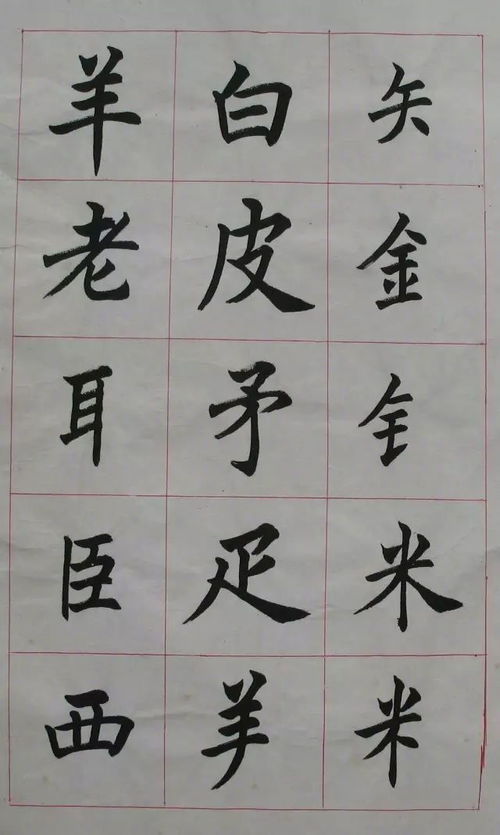 矢金釒米米
白皮矛疋羊
羊老耳臣西